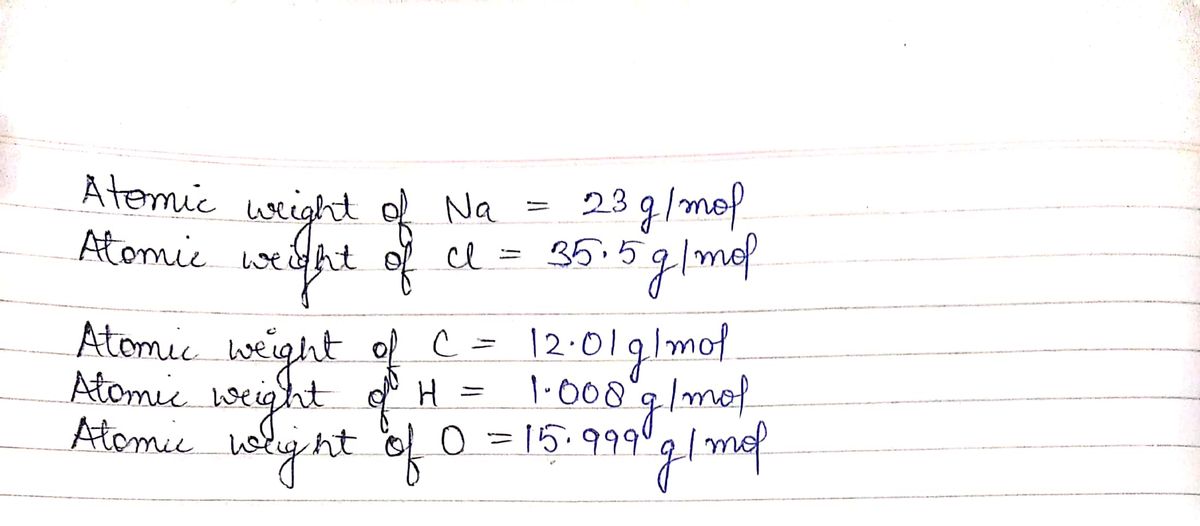 Atomic weight of Na = 23 g/mol
Atomic weight of Cl = 35.5 g/mol
Atomic weight of C = 12.01 g/mol
Atomic weight of H = 1.008 g/mol
Atomic weight of O = 15.999 g/mol